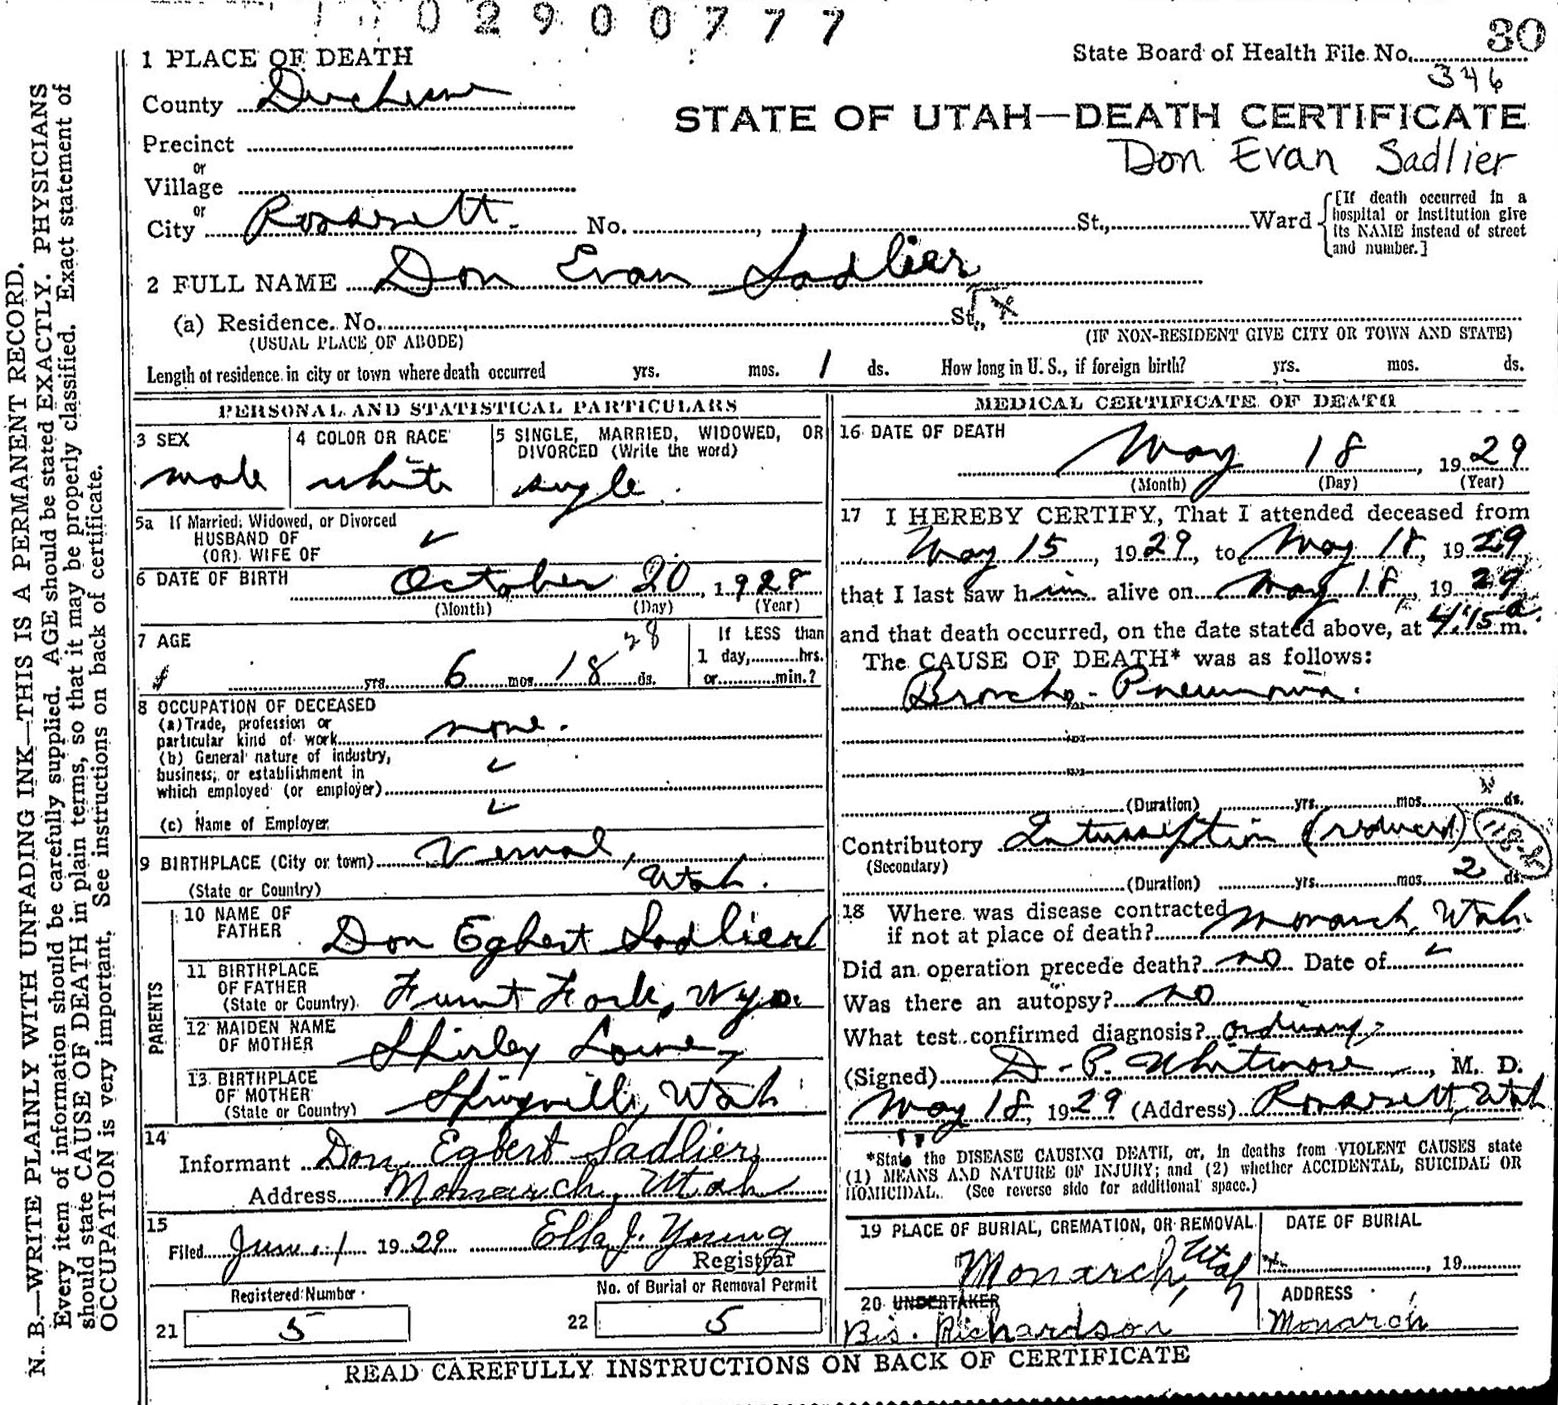 02900777
30
1 PLACE OF DEATH
State Board of Health File No.
346
County Duchesne
STATE OF UTAH—DEATH CERTIFICATE
Precinct
Don Evan Sadlier
or
Village
or
City Roosevelt No. , St., Ward
[If death occurred in a hospital or institution give its NAME instead of street and number.]
2 FULL NAME Don Evan Sadlier
(a) Residence. No. St.,
(USUAL PLACE OF ABODE) (IF NON-RESIDENT GIVE CITY OR TOWN AND STATE)
Length of residence in city or town where death occurred yrs. mos. 1 ds. How long in U. S., if foreign birth? yrs. mos. ds.
PERSONAL AND STATISTICAL PARTICULARS
3 SEX
male
4 COLOR OR RACE
white
5 SINGLE, MARRIED, WIDOWED, OR
DIVORCED (Write the word)
single
5a If Married, Widowed, or Divorced
HUSBAND OF
(OR) WIFE OF
6 DATE OF BIRTH October 20, 1928
(Month) (Day) (Year)
7 AGE
28
yrs. 6 mos. 18 ds.
If LESS than
1 day, hrs.
or min.?
8 OCCUPATION OF DECEASED
(a) Trade, profession or
particular kind of work none.
(b) General nature of industry,
business, or establishment in
which employed (or employer)
(c) Name of Employer
9 BIRTHPLACE (City or town) Vernal,
(State or Country) Utah.
PARENTS
10 NAME OF
FATHER Don Egbert Sadlier
11 BIRTHPLACE
OF FATHER
(State or Country) Fork, Wyo.
12 MAIDEN NAME
OF MOTHER Shirley
13 BIRTHPLACE
OF MOTHER
(State or Country) Springville, Utah
14
Informant Don Egbert Sadlier
Address Monarch, Utah
15
Filed June 1 1929 Ella J. Young
Registrar
Registered Number
21 5
No. of Burial or Removal Permit
22 5
MEDICAL CERTIFICATE OF DEATH
16 DATE OF DEATH
May 18, 1929
(Month) (Day) (Year)
17 I HEREBY CERTIFY, That I attended deceased from
May 15, 1929, to May 18, 1929,
that I last saw him alive on May 18, 1929
and that death occurred, on the date stated above, at 4:15 a m.
The CAUSE OF DEATH* was as follows:
Broncho-Pneumonia.
(Duration) yrs. mos. ds.
Contributory Intussuception (reduced)
(Secondary)
(Duration) yrs. mos. 2 ds.
18 Where was disease contracted
if not at place of death? Monarch, Utah.
Did an operation precede death? no Date of
Was there an autopsy? no
What test confirmed diagnosis? ordinary
(Signed) D. P. Whitmore, M. D.
May 18, 1929 (Address) Roosevelt, Utah
*State the DISEASE CAUSING DEATH, or, in deaths from VIOLENT CAUSES state
(1) MEANS AND NATURE OF INJURY; and (2) whether ACCIDENTAL, SUICIDAL OR
HOMICIDAL. (See reverse side for additional space.)
19 PLACE OF BURIAL, CREMATION, OR REMOVAL
Monarch, Utah
DATE OF BURIAL
, 19
20 UNDERTAKER
Bis. Richardson
ADDRESS
Monarch
READ CAREFULLY INSTRUCTIONS ON BACK OF CERTIFICATE
N. B.—WRITE PLAINLY WITH UNFADING INK—THIS IS A PERMANENT RECORD.
Every item of information should be carefully supplied. AGE should be stated EXACTLY. PHYSICIANS
should state CAUSE OF DEATH in plain terms, so that it may be properly classified. Exact statement of
OCCUPATION is very important. See instructions on back of certificate.